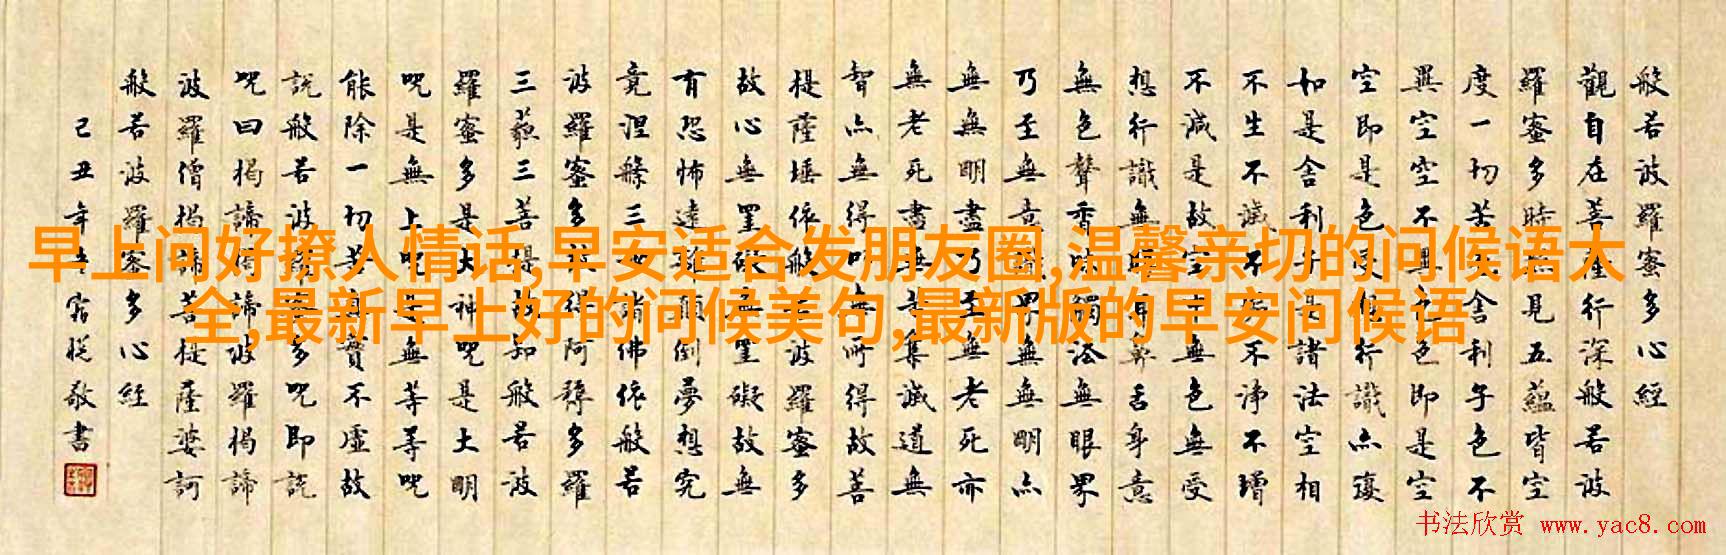 早上问好撩人情话,早安适合发朋友圈,温馨亲切的问候语大
全,最新早上好的问候美句,最新版的早安问候语
般若波羅蜜多心經
觀自在菩薩行深般若波
羅蜜多時照見五蘊皆空
度一切苦厄舍利子色不
異空空不異色色即是空
空即是色受想行識亦復
如是舍利子是諸法空相
不生不滅不垢不淨不增
不減是故空中無色無受
想行識無眼耳鼻舌身意
無色聲香味觸法無眼界
乃至無意識界無無明亦
無無明盡乃至無老死亦
無老死盡無苦集滅道無
智亦無得以無所得故菩
提薩埵依般若波羅蜜多
故心無罣礙無罣礙故無
有恐怖遠離顛倒夢想究
竟涅槃三世諸佛依般若
波羅蜜多故得阿耨多羅
三藐三菩提故知般若波
羅蜜多是大神咒是大明
咒是無上咒是無等等咒
能除一切苦真實不虛故
說般若波羅蜜多咒即說
咒曰揭諦揭諦波羅揭諦
波羅僧揭諦菩提薩婆訶
般若波羅蜜多心經
己丑年敬書
书法欣赏 www.yac8.com